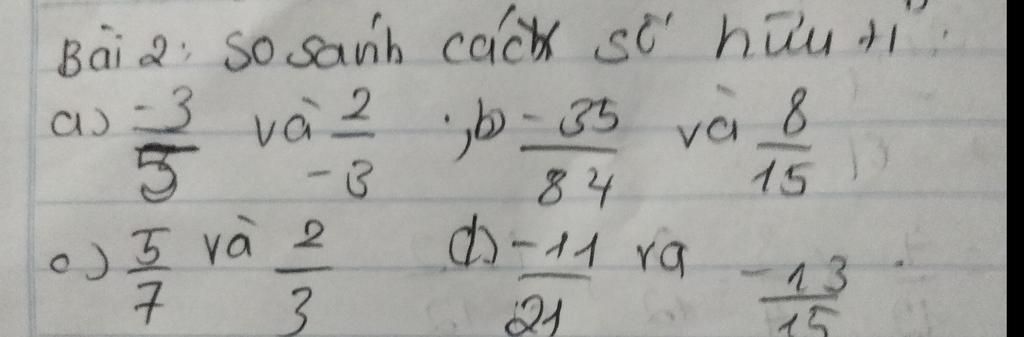 Bài 2: So sánh các số hữu tỉ:
a) -3/5 và 2/-3 ; b) -35/84 và 8/15
c) 5/7 và 2/3 d) -11/21 và -13/15